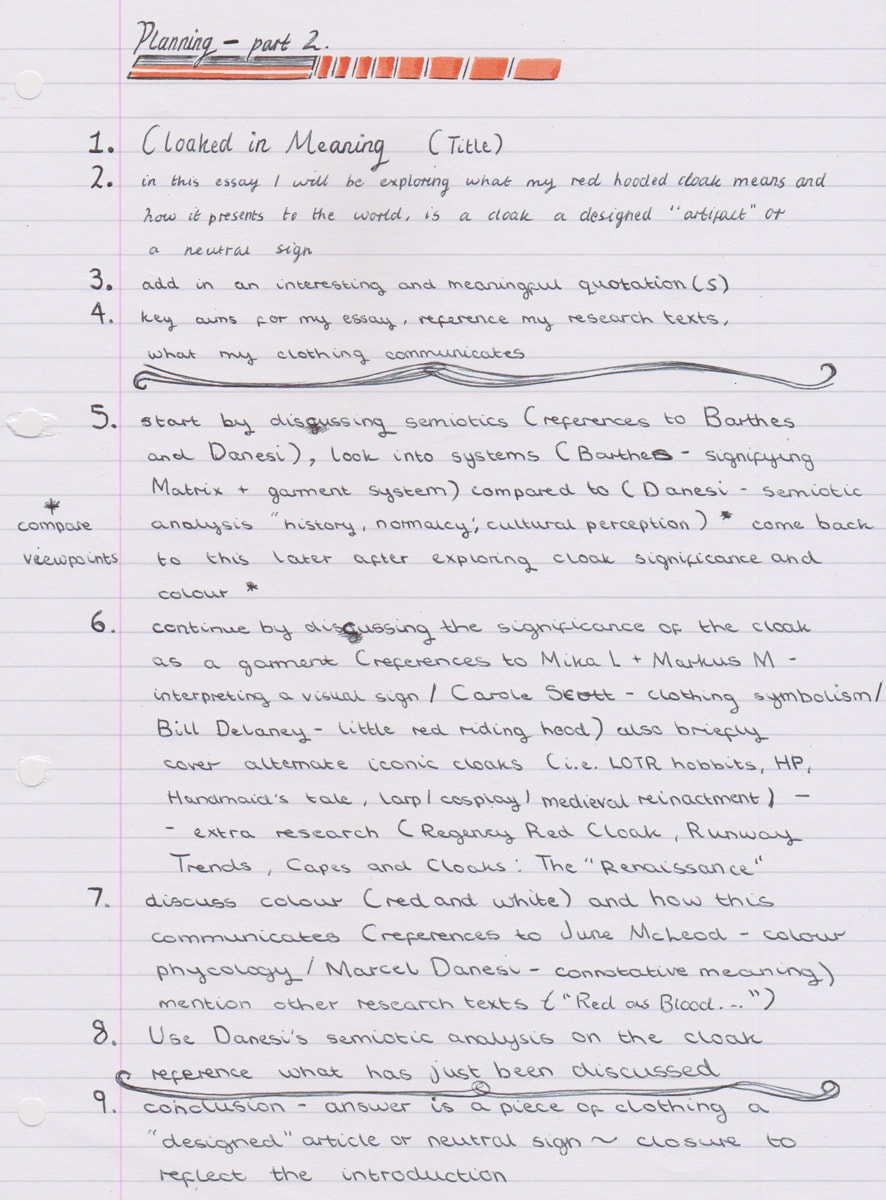 Planning - part 2.
1. Cloaked in Meaning (Title)
2. in this essay I will be exploring what my red hooded cloak means and
how it presents to the world, is a cloak a designed "artifact" or
a neutral sign
3. add in an interesting and meaningful quotation(s)
4. key aims for my essay, reference my research texts,
what my clothing communicates
5. start by discussing semiotics (references to Barthes
and Danesi), look into systems (Barthes - signifying
Matrix + garment system) compared to (Danesi - semiotic
analysis "history, normalcy, cultural perception) * come back
to this later after exploring cloak significance and
colour *
* compare
viewpoints
6. continue by discussing the significance of the cloak
as a garment (references to Mika L + Markus M -
interpreting a visual sign / Carole Scott - clothing symbolism /
Bill Delaney - little red riding hood) also briefly
cover alternate iconic cloaks (i.e. LOTR hobbits, HP,
Handmaid's tale, larp / cosplay / medieval reinactment) -
- extra research (Regency Red Cloak, Runway
Trends, Capes and Cloaks: The "Renaissance"
7. discuss colour (red and white) and how this
communicates (references to June McLeod - colour
phycology / Marcel Danesi - connotative meaning)
mention other research texts ("Red as Blood...")
8. Use Danesi's semiotic analysis on the cloak
reference what has just been discussed
9. conclusion - answer is a piece of clothing a
"designed" article or neutral sign ~ closure to
reflect the introduction